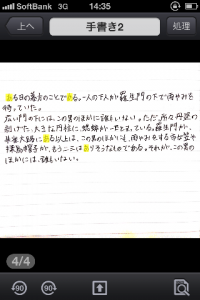 SoftBank 3G 14:35
上へ 手書き2 処理
ある日の暮方のことである。一人の下人が羅生門の下で雨やみを
待っていた。
広い門の下には、この男のほかに誰もいない。ただ、所々丹塗の
剥げた、大きな円柱に、蟋蟀が一匹とまっている。羅生門が、
朱雀大路にある以上は、この男のほかにも、雨やみをする市女笠や
揉烏帽子が、もう二三はありそうなものである。それが、この男の
ほかには、誰もいない。
4/4
90 90